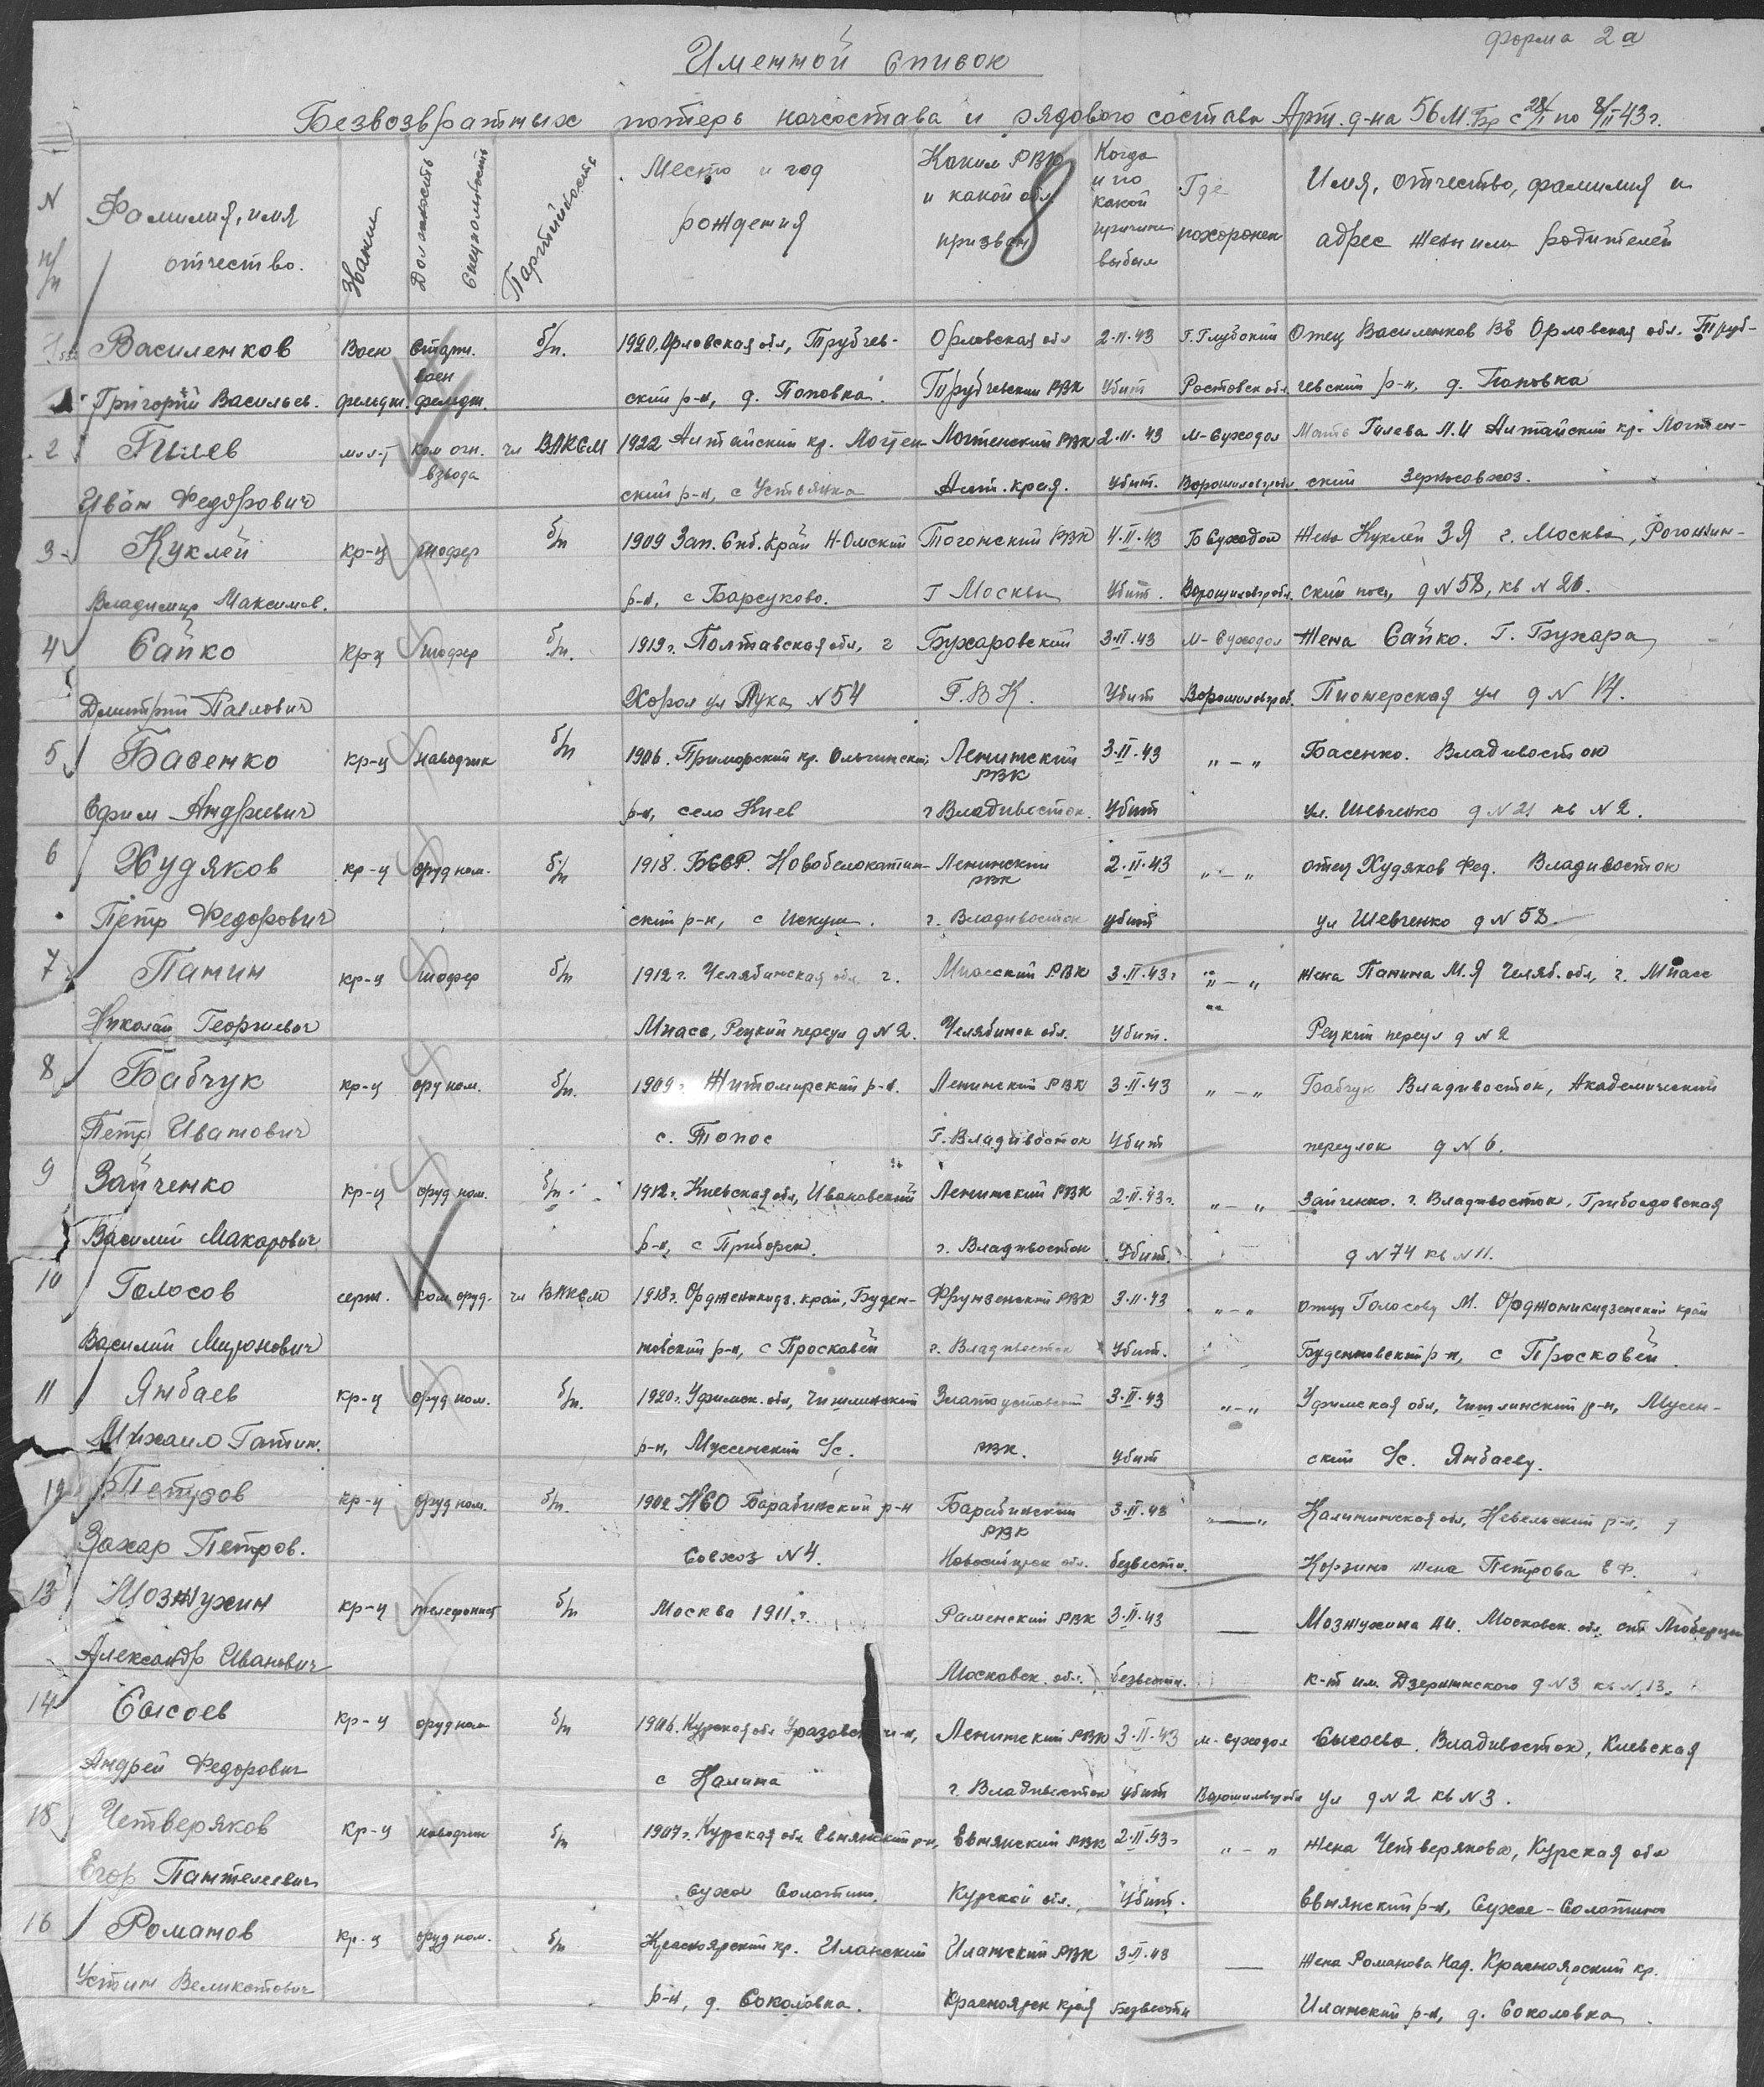 форма 2а
Именной список
Безвозвратных потерь начсостава и рядового состава Арт. д-на 56 М.Бр с 28/I по 8/II-43 г.
N п/п
Фамилия, имя отчество.
Звание
Должность специальность
Партийность
Место и год рождения
Каким РВК и какой обл. призван
8
Когда и по какой причине выбыл
Где похоронен
Имя, отчество, фамилия и адрес жены или родителей
Василенков Воен Старш. б/п. 1920, Орловская обл, Трубчев- Орловская обл 2-II-43 Г. Глубокий Отец Василенков ВЪ Орловская обл. Труб-
воен
Григорий Васильев. фельдш. фельдш. ский р-н, д. Поповка. Трубчевский РВК Убит Ростовск обл. чевский р-н, д. Поповка
2 Гилев мл л-т ком огн. чл ВЛКСМ 1922 Алтайский кр. Локтен- Локтенский РВК 2-II-43 М-Суходол Мать Гилева Л.И Алтайский кр. Локтен-
взвода
Иван Федорович ский р-н, с Устьянка Алт. края. Убит. Ворошиловгр обл. ский Зерносовхоз.
3 Куклей кр-ц шофер б/п 1909 Зап. Сиб. Край Н-Омский РВК 4-II-43 Б Суходол Жена Куклей З Я г. Москва, Рогожин-
Владимир Максимов. р-н, с Барсуково. Г Москвы Убит. Ворошиловгр обл. ский пос, д N 58, кв N 26.
4 Сайко кр-ц шофер б/п. 1919 г. Полтавская обл, г Бухаровский 3-II-43 М-Суходол Жена Сайко. Г. Бухара,
Дмитрий Павлович Хорол ул Лука, N 54 Г.В.К. Убит Ворошиловгр обл. Пионерская ул д N 14.
5 Басенко кр-ц наводчик б/п 1906. Приморский кр. Ольгинский Ленинский 3-II-43 "-" Басенко. Владивосток
РВК
Ефим Андреевич р-н, село Киев г Владивосток. Убит ул. Шевченко д N 21 кв N 2.
6 Худяков кр-ц оруд ном. б/п 1918. БССР. Новобелокатай- Ленинский 2-II-43 "-" отец Худяков Фед. Владивосток
РВК
Петр Федорович ский р-н, с Искуш. г. Владивосток убит ул Шевченко д N 58
7 Панин кр-ц шофер б/п 1912 г. Челябинская обл г. Миасский РВК 3-II-43 г "-" Жена Панина М.Я Челяб. обл, г. Миасс
Николай Георгиевич Миасс, Рецкий переул д N 2. Челябинск обл. Убит. Рецкий переул д N 2
8 Бабчук кр-ц оруд ном. б/п. 1909 г. Житомирский р-н. Ленинский РВК 3-II-43 "-" Бабчук Владивосток, Академический
Петр Иванович с. Топос Г. Владивосток Убит переулок д N 6.
9 Зайченко кр-ц оруд ном. б/п 1912 г. Киевская обл, Ивановский Ленинский РВК 2-II-43 г. "-" Зайченко. г. Владивосток, Грибоедовская
Василий Макарович р-н, с Приборск. г. Владивосток Убит. д N 74 кв N 11.
10 Голосов серж. ком. оруд. чл ВЛКСМ 1918 г. Орджоникидз. край, Буден- Фрунзенский РВК 3-II-43 "-" отцу Голосову М. Орджоникидзевский край
Василий Миронович новский р-н, с Просковей г. Владивосток Убит. Буденновский р-н, с Просковей
11 Янбаев кр-ц оруд ном. б/п. 1920 г. Уфимск. обл, Чишлинский Златоустовский 3-II-43 "-" Уфимская обл, Чишлинский р-н, Мусин-
Михаил Гатин. р-н, Мусинский с/с. РВК. Убит ский с/с. Янбаеву.
12 Петров кр-ц оруд ном. б/п. 1902 НСО Барабинский р-н Барабинский 3-II-43 "-" Калининская обл, Невельский р-н, д
РВК
Захар Петров. Совхоз N 4. Новосибирск обл. безвести. Корзино жена Петрова Е Ф.
13 Мозжухин кр-ц телефонист б/п Москва 1911 г. Раменский РВК 3-II-43 — Мозжухина А И. Московск. обл. ст. Люберцы
Александр Иванович Московск. обл. безвести. к-т им. Дзержинского д N 3 кв N 13.
14 Сысоев кр-ц оруд ном б/п 1906. Курская обл Уразовский р-н, Ленинский РВК 3-II-43 м-суходол Сысоева. Владивосток, Киевская
Андрей Федорович с Калина г. Владивосток убит Ворошиловгр обл ул д N 2 кв N 3.
15 Четверяков кр-ц наводчик б/п 1907 г. Курская обл. Ивнянский р-н, Ивнянский РВК 2-II-43 г "-" Жена Четверякова, Курская обл
Егор Пантелеевич Сухая Солотина. Курской обл. Убит. Ивнянский р-н, Сухая-Солотина
16 Романов кр-ц оруд ном. б/п Красноярский кр. Иланский Иланский РВК 3-II-43 — Жена Романова Над. Красноярский кр.
Устин р-н, д. Соколовка. Красноярск края Безвести Иланский р-н, д. Соколовка